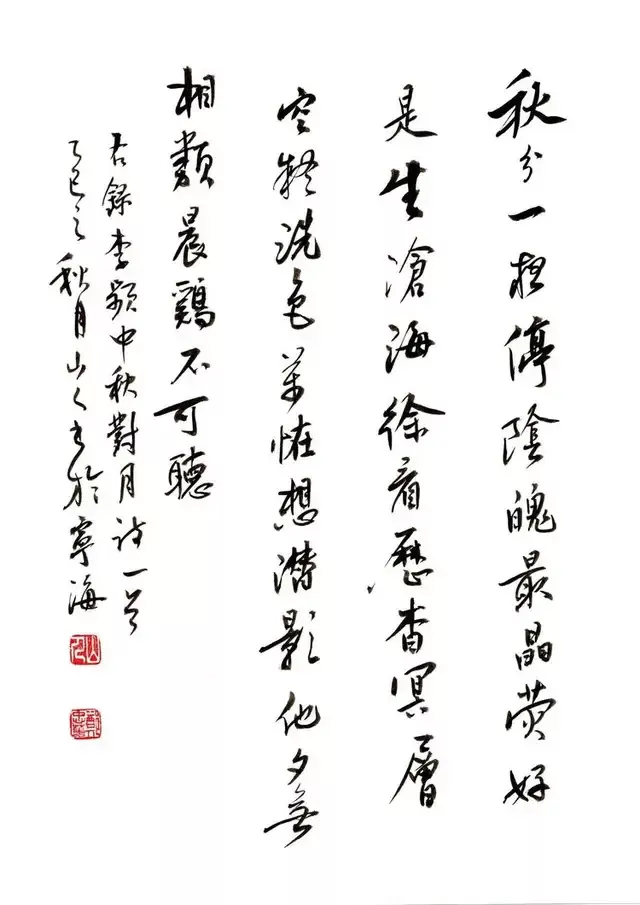 秋分一停陰魄最晶荧好
是生滄海徐看歷杳冥層
空疑洗色萬恠想潜影他夕無
相類晨鷄不可聽
右錄李频中秋對月诗一首
乙巳之秋月山人书於寧海